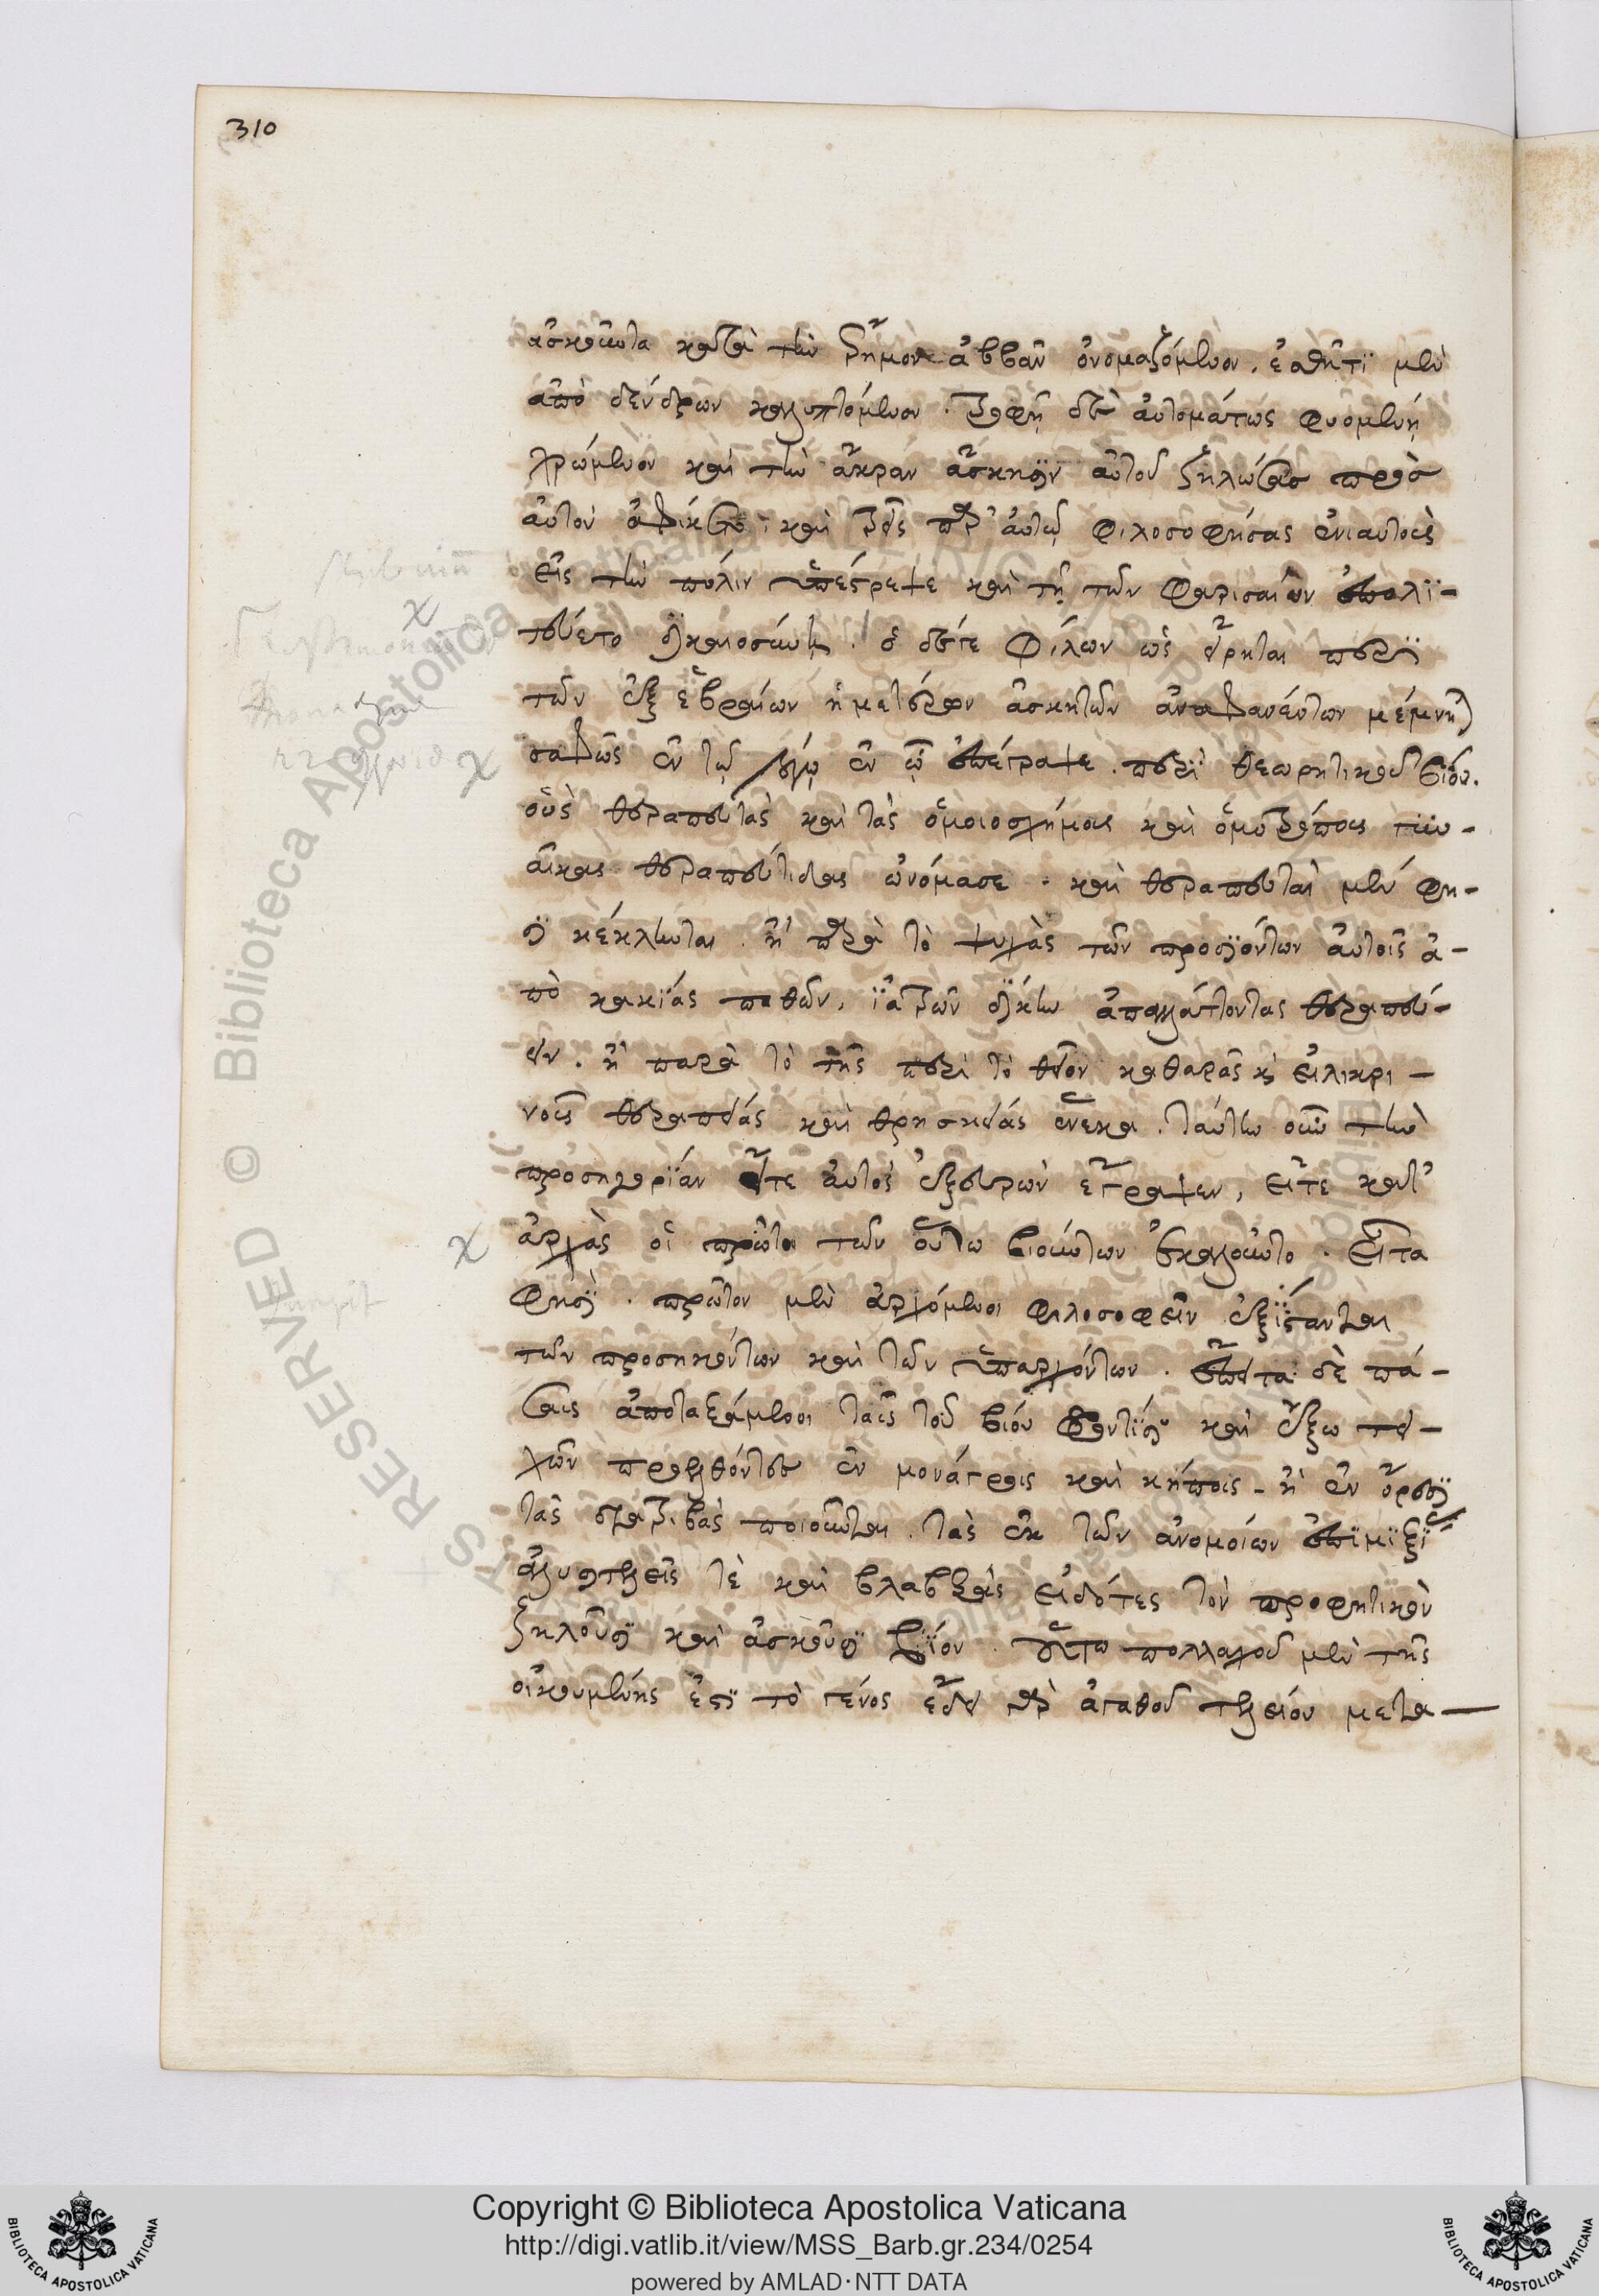 310
ἀσκοῦντα κατὰ τὴν ἔρημον ἀββᾶν ὀνομαζόμενον. ἐσθῆτϊ μὲν
ἀπὸ δένδρων καλυπτόμενον. τροφῇ δὲ αὐτομάτως φυομένῃ
χρώμενον καὶ τὴν ἄκραν ἄσκησϊν αὐτοῦ ζηλώσας πρὸς
αὐτὸν ἀφίκετο· καὶ τρεῖς παρ' αὐτῷ φιλοσοφήσας ἐνιαυτοὺς
εἰς τὴν πόλιν ὑπέστρεψε καὶ τῇ τῶν Φαρισαίων ἐπολϊ-
τεύετο δικαιοσύνῃ. ὁ δέ τε Φίλων ὡς εἴρηται περὶ
τῶν ἐξ ἑβραίων ἡμετέρων ἀσκητῶν ἀναφανέντων μέμνηται
σαφῶς ἐν τῷ λόγῳ ἐν ᾧ ἐπέγραψε. περὶ θεωρητικοῦ βίου.
οὓς θεραπευτὰς καὶ τὰς ὁμοιοσχήμους καὶ ὁμοτρόπους γυν-
αῖκας θεραπεύτιδας ὠνόμασε. καὶ θεραπευταὶ μέν φη-
σϊ κέκληνται. ἢ παρὰ τὸ ψυχὰς τῶν προσϊόντων αὐτοῖς ἀ-
πὸ κακϊάς παθῶν, ἰατρῶν δίκην ἀπαλλάττοντας θεραπεύ-
ειν. ἢ παρὰ τὸ τῆς περὶ τὸ θεῖον καθαρᾶς κ εἰλικρι-
νοῦς θεραπείας καὶ θρησκείας ἕνεκα. ταύτην οὖν τὴν
προσηγορϊάν εἴτε αὐτὸς ἐξευρὼν ἔγραψεν, εἴτε κατ'
ἀρχὰς οἱ πρῶτοι τῶν οὕτω βιούντων ἐκαλοῦντο. εἶτα
Φησὶ. πρῶτον μὲν ἀρχόμενοι φιλοσοφεῖν ἐξϊστανται
τῶν προσηκόντων καὶ τῶν ὑπαρχόντων. ἔπειτα δὲ πά-
σαις ἀποταξάμενοι ταῖς τοῦ βίου φροντίσϊ καὶ ἔξω τει-
χῶν προελθόντες ἐν μονάγροις καὶ κήποις- ἢ ἐν ὄρεσϊ
τὰς διατριβὰς ποιοῦνται. τὰς ἐκ τῶν ἀνομοίων ἐπϊμϊξϊ
ἀλυσιτελεῖς τὲ καὶ βλαβερὰς εἰδότες τὸν προφητικὸν
ζηλοῦσϊ καὶ ἀσκοῦσϊ βϊόν. πολλαχοῦ μὲν τῆς
οἰκουμένης ἐστϊ τὸ γένος ἔδει γὰρ ἀγαθοῦ τελείου μετα-
Copyright © Biblioteca Apostolica Vaticana
http://digi.vatlib.it/view/MSS_Barb.gr.234/0254
powered by AMLAD·NTT DATA